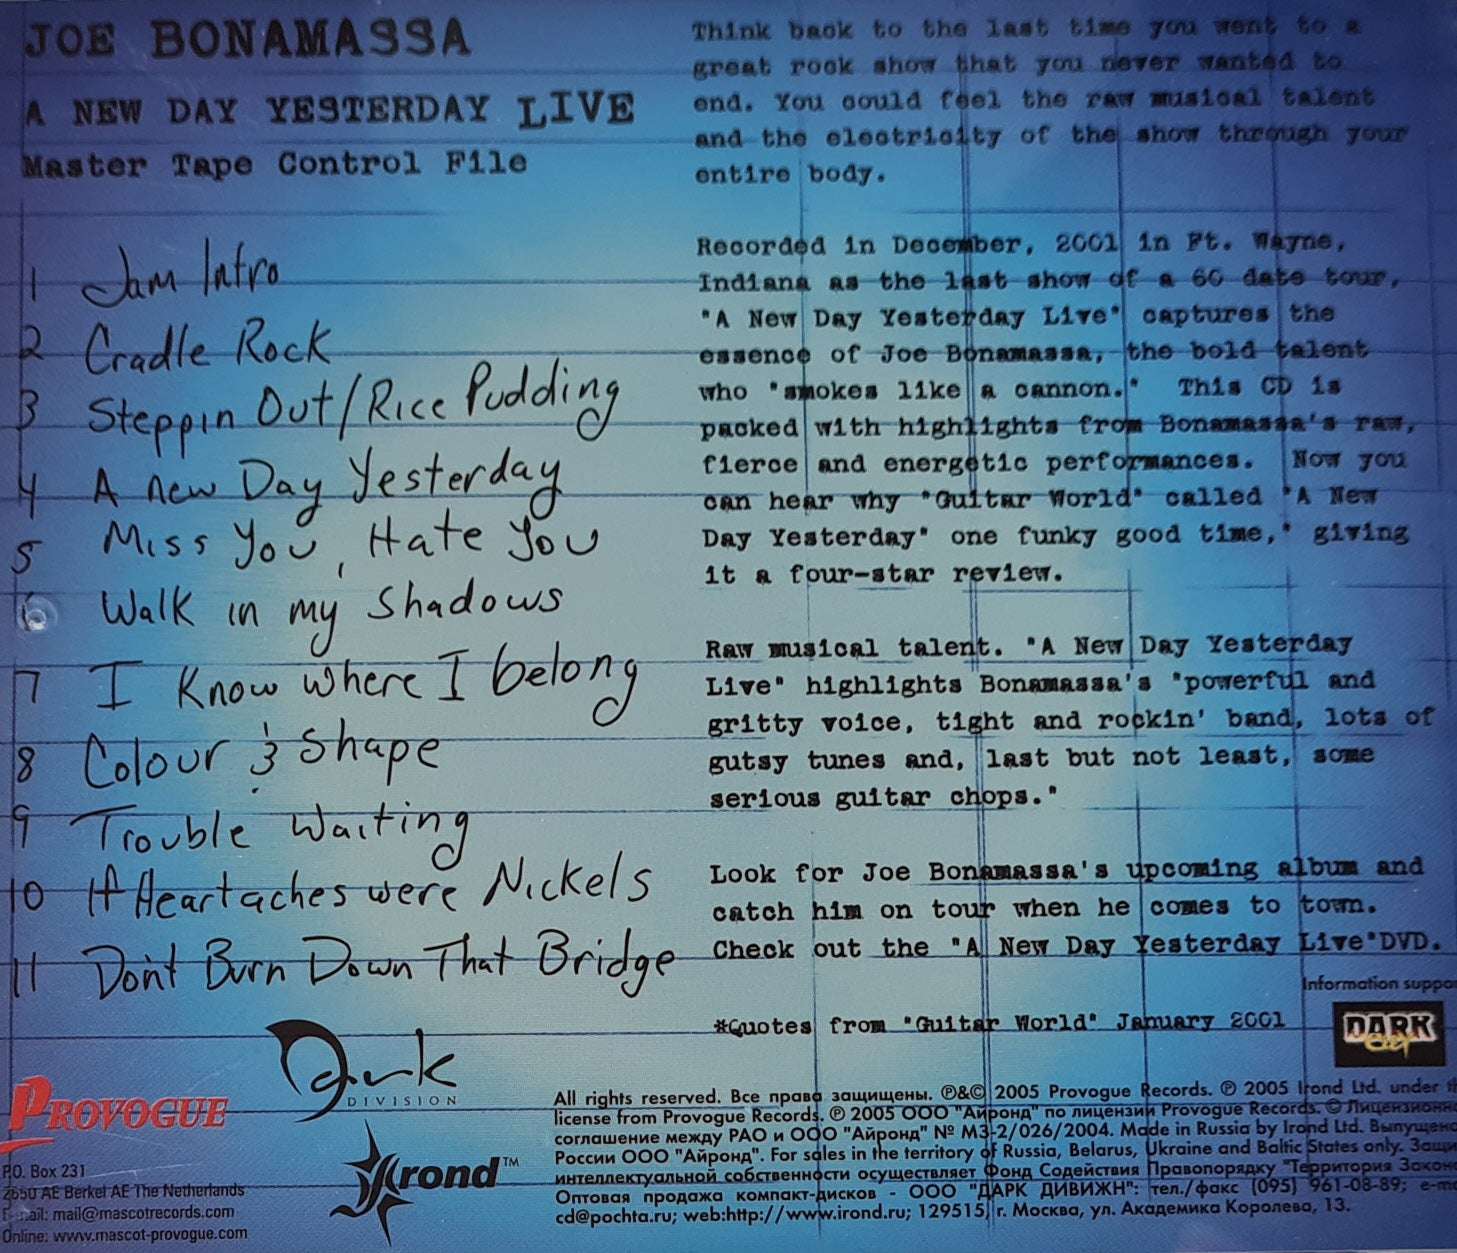 JOE BONAMASSA
A NEW DAY YESTERDAY LIVE
Master Tape Control File
1 Jam Intro
2 Cradle Rock
3 Steppin Out/Rice Pudding
4 A new Day Yesterday
5 Miss You, Hate You
6 Walk in my Shadows
7 I Know where I belong
8 Colour & Shape
9 Trouble Waiting
10 If Heartaches were Nickels
11 Don't Burn Down That Bridge
Think back to the last time you went to a
great rock show that you never wanted to
end. You could feel the raw musical talent
and the electricity of the show through your
entire body.
Recorded in December, 2001 in Ft. Wayne,
Indiana as the last show of a 60 date tour,
"A New Day Yesterday Live" captures the
essence of Joe Bonamassa, the bold talent
who "smokes like a cannon." This CD is
packed with highlights from Bonamassa's raw,
fierce and energetic performances. Now you
can hear why "Guitar World" called "A New
Day Yesterday" one funky good time," giving
it a four-star review.
Raw musical talent. "A New Day Yesterday
Live" highlights Bonamassa's "powerful and
gritty voice, tight and rockin' band, lots of
gutsy tunes and, last but not least, some
serious guitar chops."
Look for Joe Bonamassa's upcoming album and
catch him on tour when he comes to town.
Check out the "A New Day Yesterday Live"DVD.
*Quotes from "Guitar World" January 2001
Information suppo
DARK
City
PROVOGUE
P.O. Box 231
2650 AE Berkel AE The Netherlands
E-mail: mail@mascotrecords.com
Online: www.mascot-provogue.com
Dark
DIVISION
Irond™
All rights reserved. Все права защищены. ℗&© 2005 Provogue Records. ℗ 2005 Irond Ltd. under th
license from Provogue Records. ℗ 2005 ООО "Айронд" по лицензии Provogue Records. © Лицензионно
соглашение между РАО и ООО "Айронд" № МЗ-2/026/2004. Made in Russia by Irond Ltd. Выпущено
России ООО "Айронд". For sales in the territory of Russia, Belarus, Ukraine and Baltic States only. Защи
интеллектуальной собственности осуществляет Фонд Содействия Правопорядку "Территория Закон
Оптовая продажа компакт-дисков - ООО "ДАРК ДИВИЖН": тел./факс (095) 961-08-89; e-m
cd@pochta.ru; web:http://www.irond.ru; 129515, г. Москва, ул. Академика Королева, 13.